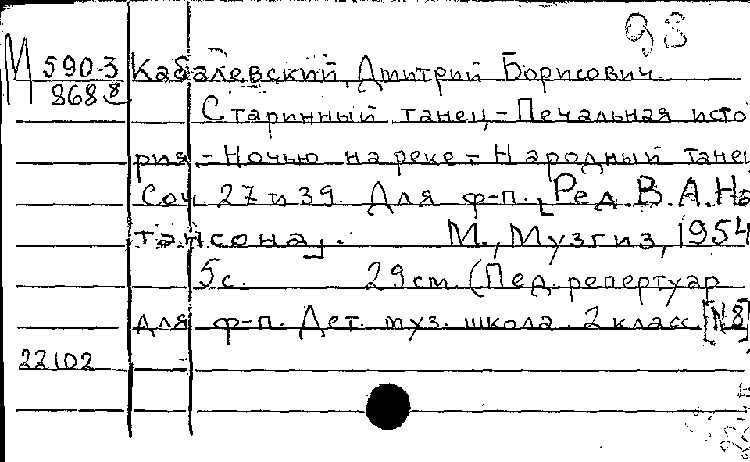 98
М 590-3 Кабалевский, Дмитрий Борисович
868 Старинный танец - Печальная исто
рия - Ночью на реке - Народный танец
Соч 27 и 39 Для ф-п. [Ред. В.А. На
тансона]. М., Музгиз, 1954
5 с. 29 см. (Пед. репертуар
для ф-п. Дет. муз. школа. 2 класс. [N8]
22102